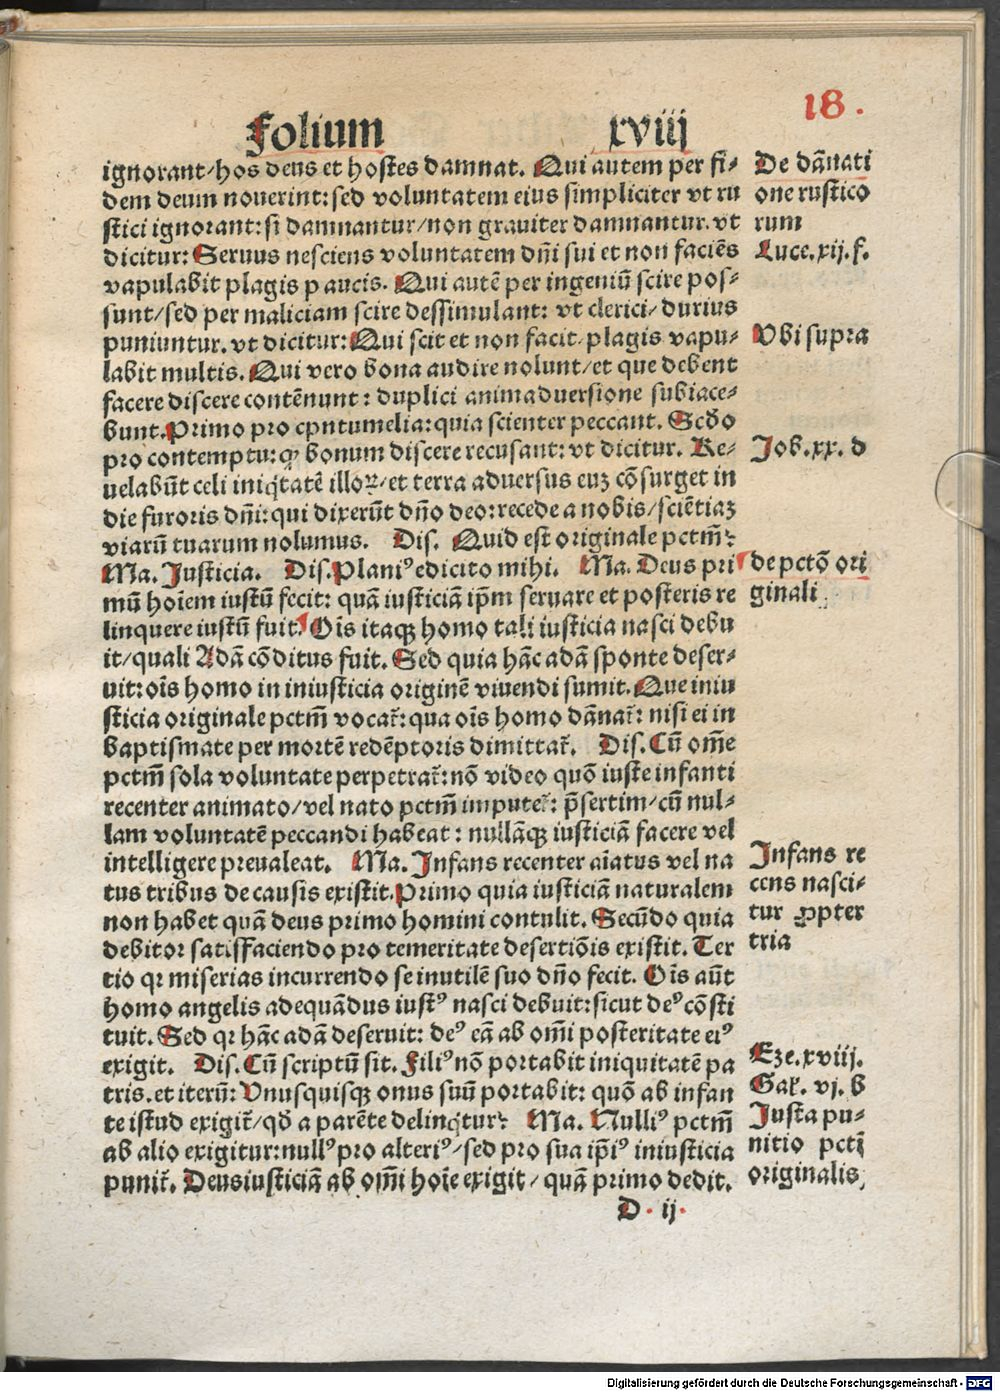 18.
Folium xviij
ignorant/hos deus et hostes damnat. Qui autem per fi-
dem deum nouerint: sed voluntatem eius simpliciter vt ru
stici ignorant: si damnantur/non grauiter damnantur. vt
dicitur: Seruus nesciens voluntatem dñi sui et non faciẽs
vapulabit plagis paucis. Qui autẽ per ingeniũ scire pos-
sunt/sed per maliciam scire dessimulant: vt clerici/durius
puniuntur. vt dicitur: Qui scit et non facit/plagis vapu-
labit multis. Qui vero bona audire nolunt/et que debent
facere discere contẽnunt: duplici animaduersione subiace-
bunt. Primo pro cpntumelia: quia scienter peccant. Scďo
pro contemptu: qꝫ bonum discere recusant: vt dicitur. Re-
uelabũt celi iniq̇tatẽ illoꝝ/et terra aduersus euꝫ cõsurget in
die furoris dñi: qui dixerũt dño deo: recede a nobis/sciẽtiaꝫ
viarũ tuarum nolumus. Dis. Quid est originale pctm̃?
Ma. Justicia. Dis. Planiꝰ edicito mihi. Ma. Deus pri
mũ hoĩem iustũ fecit: quã iusticiã ip̃m seruare et posteris re
linquere iustũ fuit. Oĩs itaqꝫ homo tali iusticia nasci debu
it/quali Adã cõditus fuit. Sed quia hãc adã sponte deser-
uit: oĩs homo in iniusticia originẽ viuendi sumit. Que iniu
sticia originale pctm̃ vocat̃: qua oĩs homo dãnat̃: nisi ei in
baptismate per mortẽ redẽptoris dimittat̃. Dis. Cũ om̃e
pctm̃ sola voluntate perpetrat̃: nõ video quõ iuste infanti
recenter animato/vel nato pctm̃ imputet̃: p̃sertim/cũ nul-
lam voluntatẽ peccandi habeat: nullãqꝫ iusticiã facere vel
intelligere preualeat. Ma. Infans recenter aĩatus vel na
tus tribus de causis existit. Primo quia iusticiã naturalem
non habet quã deus primo homini contulit. Secũdo quia
debitor satisfaciendo pro temeritate desertiõis existit. Ter
tio qꝛ miserias incurrendo se inutilẽ suo dño fecit. Oĩs aũt
homo angelis adequãdus iustꝰ nasci debuit: sicut deꝰ cõsti
tuit. Sed qꝛ hãc adã deseruit: deꝰ eã ab om̃i posteritate eiꝰ
exigit. Dis. Cũ scriptũ sit. Filiꝰ nõ portabit iniquitatẽ pa
tris. et iterũ: Vnusquisqꝫ onus suũ portabit: quõ ab infan
te istud exigit̃/qď a parẽte delinq̇tur? Ma. Nulliꝰ pctm̃
ab alio exigitur: nullꝰ pro alteriꝰ/sed pro sua ip̃iꝰ iniusticia
punit̃. Deus iusticiã ab om̃i hoĩe exigit/quã primo dedit.
D. ij.
De dãnati
one rustico
rum
Luce. xij. f.
Vbi supra
Job. xx. d
de pctõ ori
ginali
Infans re
cens nasci-
tur ꝓpter
tria
Eze. xviij.
Gal. vj. b
Justa pu-
nitio pcti
originalis
Digitalisierung gefördert durch die Deutsche Forschungsgemeinschaft - DFG